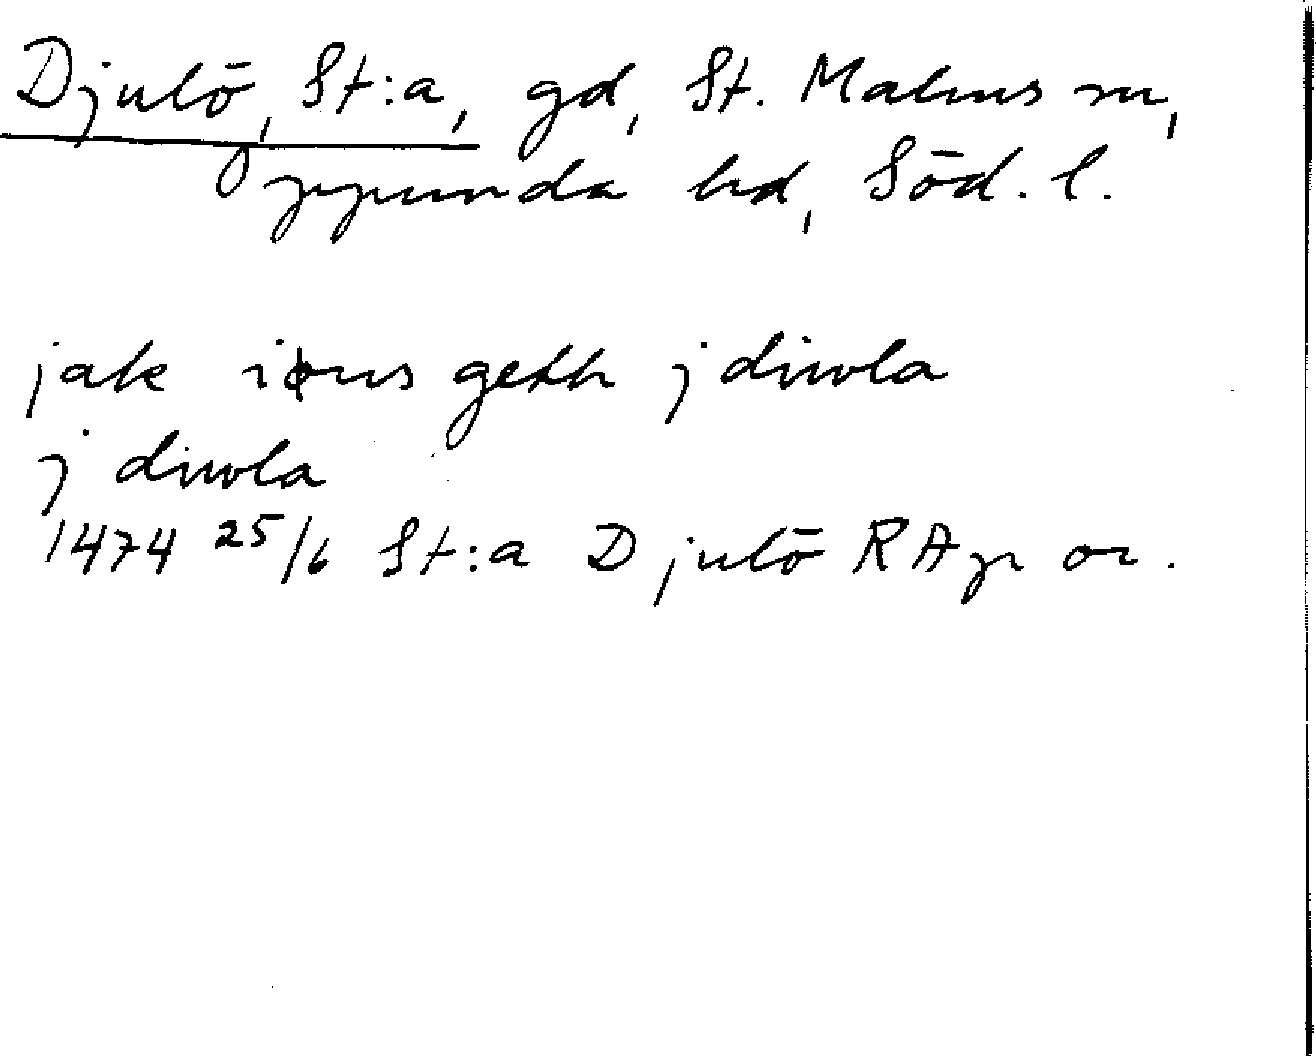 Djulö, St:a, gd, St. Malms sn,
Oppunda hd, Söd. l.
jak iøns geth j diwla
j diwla
1474 25/6 St:a Djulö RAp or.